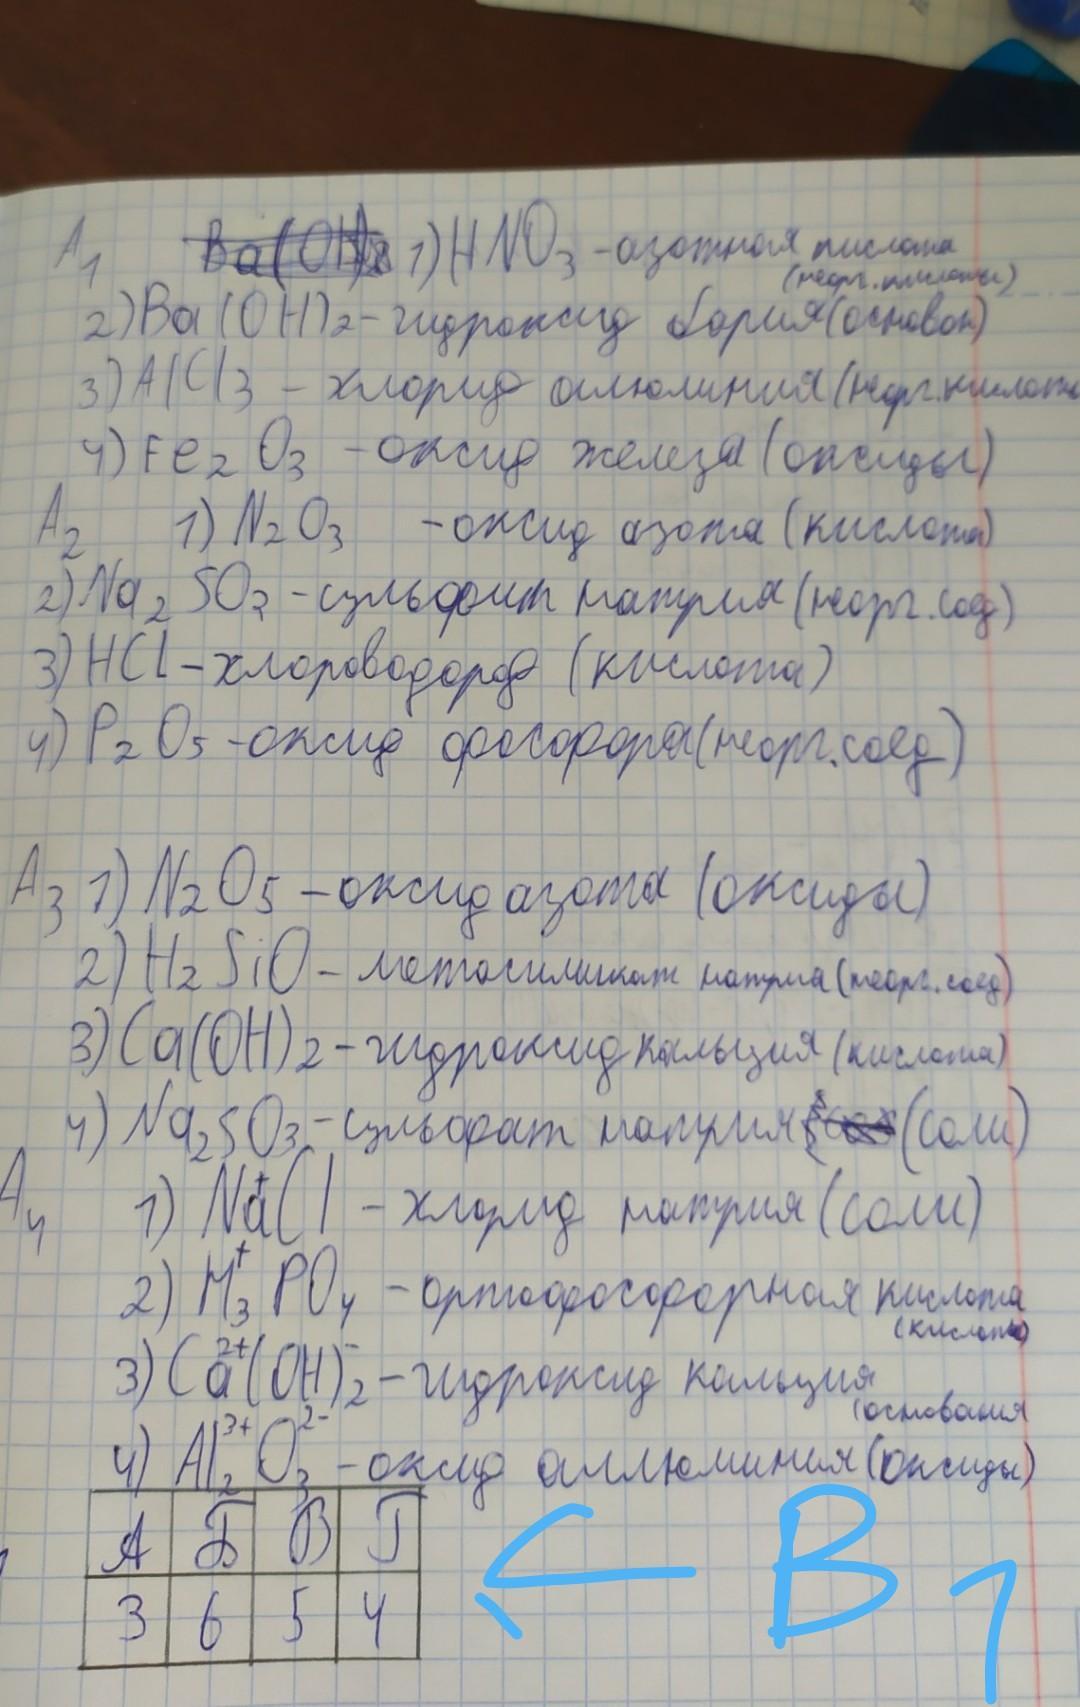 A1 1) HNO3 - азотная кислота
(неорг. кислоты)
2) Ba(OH)2 - гидроксид бария (основан)
3) AlCl3 - хлорид алюминия (неорг. кислота
4) Fe2O3 - оксид железа (оксиды)
A2 1) N2O3 - оксид азота (кислота)
2) Na2SO3 - сульфит натрия (неорг. соед)
3) HCl - хлороводород (кислота)
4) P2O5 - оксид фосфора (неорг. соед)
A3 1) N2O5 - оксид азота (оксиды)
2) H2SiO - метасиликат натрия (неорг. соед)
3) Ca(OH)2 - гидроксид кальция (кислота)
4) Na2SO3 - сульфат натрия (соли)
A4 1) Na+Cl - хлорид натрия (соли)
2) H3+PO4 - ортофосфорная кислота
(кислота)
3) Ca2+(OH)2- - гидроксид кальция
(основания
4) Al23+O32- - оксид аллюминия (оксиды)
А Б В Г
3 6 5 4
← B1